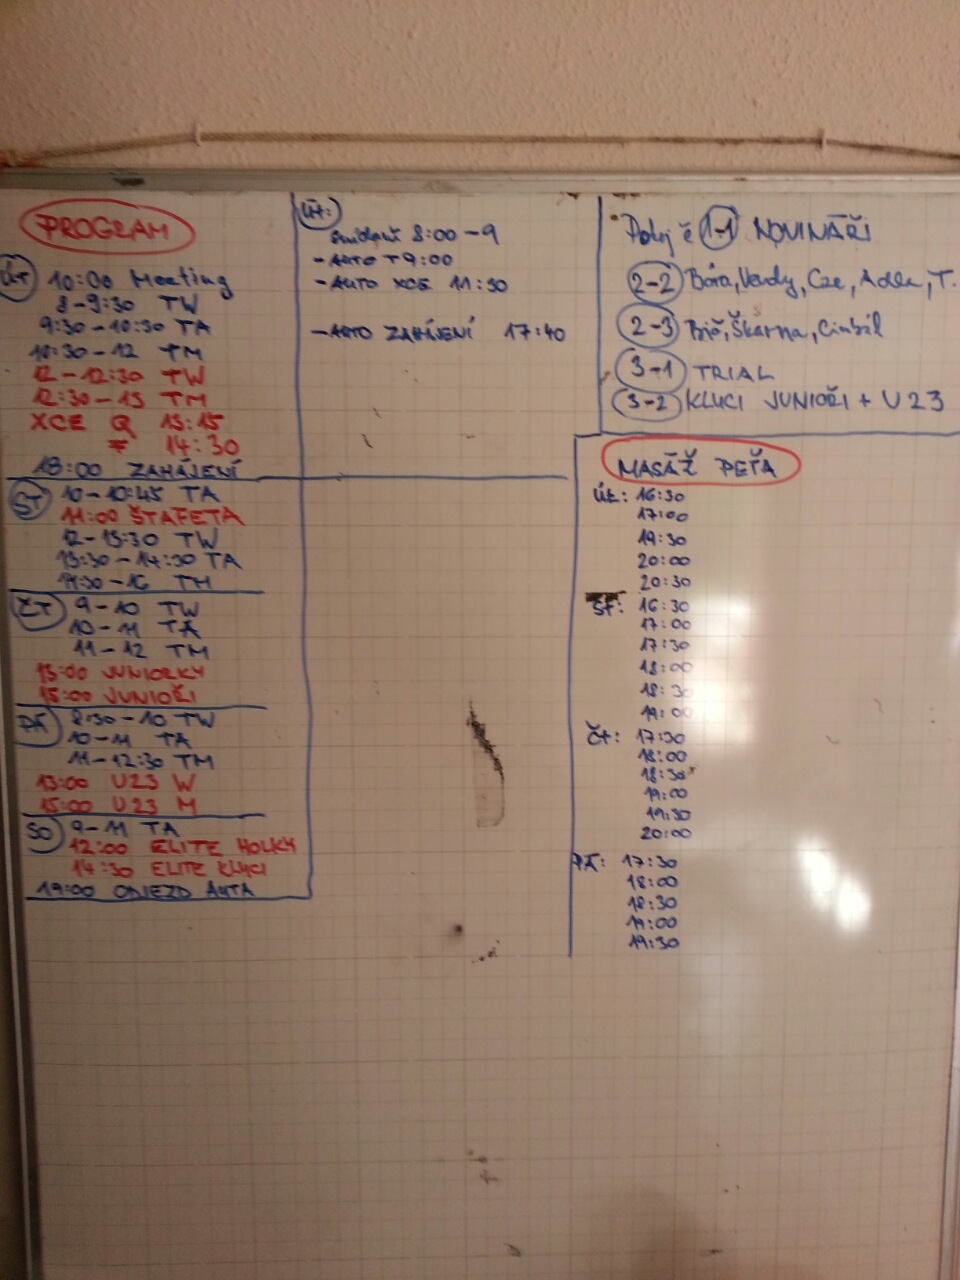 PROGRAM
ÚT 10:00 Meeting
8-9:30 TW
9:30-10:30 TA
10:30-12 TM
12-12:30 TW
12:30-13 TM
XCE Q 13:15
F 14:30
18:00 ZAHÁJENÍ
ST 10-10:45 TA
11:00 ŠTAFETA
12-13:30 TW
13:30-14:30 TA
14:30-16 TM
ČT 9-10 TW
10-11 TA
11-12 TM
13:00 JUNIORKY
15:00 JUNIOŘI
PÁ 8:30-10 TW
10-11 TA
11-12:30 TM
13:00 U23 W
15:00 U23 M
SO 9-11 TA
12:00 ELITE HOLKY
14:30 ELITE KLUCI
19:00 ODJEZD AUTA
ÚT:
snídaně 8:00-9
-AUTO T 9:00
-AUTO XCE 11:30
-AUTO ZAHÁJENÍ 17:40
Pokoj č 1-1 NOVINÁŘI
2-2 Bára, Vendy, Cze, Adéla, T.
2-3 Škarna, Cimbál
3-1 TRIAL
3-2 KLUCI JUNIOŘI + U23
MASÁŽ PEŤA
ÚT: 16:30
17:00
19:30
20:00
20:30
ST: 16:30
17:00
17:30
18:00
18:30
19:00
ČT: 17:30
18:00
18:30
19:00
19:30
20:00
PÁ: 17:30
18:00
18:30
19:00
19:30